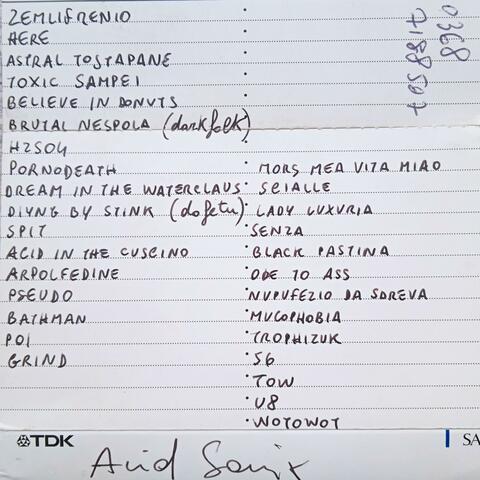 ZEMLIFRENIO
HERE
ASTRAL TOSTAPANE
TOXIC SAMPEI
BELIEVE IN DONUTS
BRUTAL NESPOLA (darkfolk)
H2SO4
PORNODEATH
DREAM IN THE WATERCLAUS
DIYNG BY STINK (dofetu)
SPIT
ACID IN THE CUSCINO
ARPOLFEDINE
PSEUDO
BATHMAN
POI
GRIND
MORS MEA VITA MIAO
SCIALLE
LADY LUXURIA
SENZA
BLACK PASTINA
ODE TO ASS
NUPUFEZIO DA SOREVA
MUCOPHOBIA
TROPHIZUK
S6
TOW
U8
WOTOWOT
0368
7188507
TDK
SA
Acid